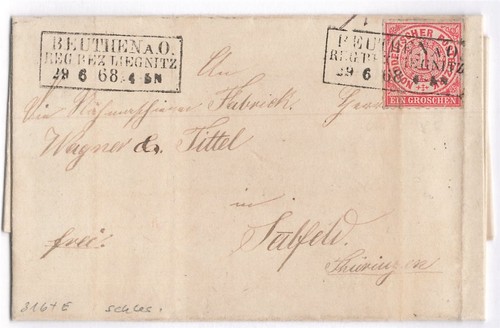 BEUTHEN A.O.
REG.BEZ LIEGNITZ
29 6 68 4-5N
BEUTHEN A.O.
REG.BEZ LIEGNITZ
29 6 68 4-5N
NORDDEUTSCHER
EIN GROSCHEN
An
die Nähmaschinen Fabrick
Wagner & Tittel
in
Salfeld.
Thüringen
frei.
8167 E schles.